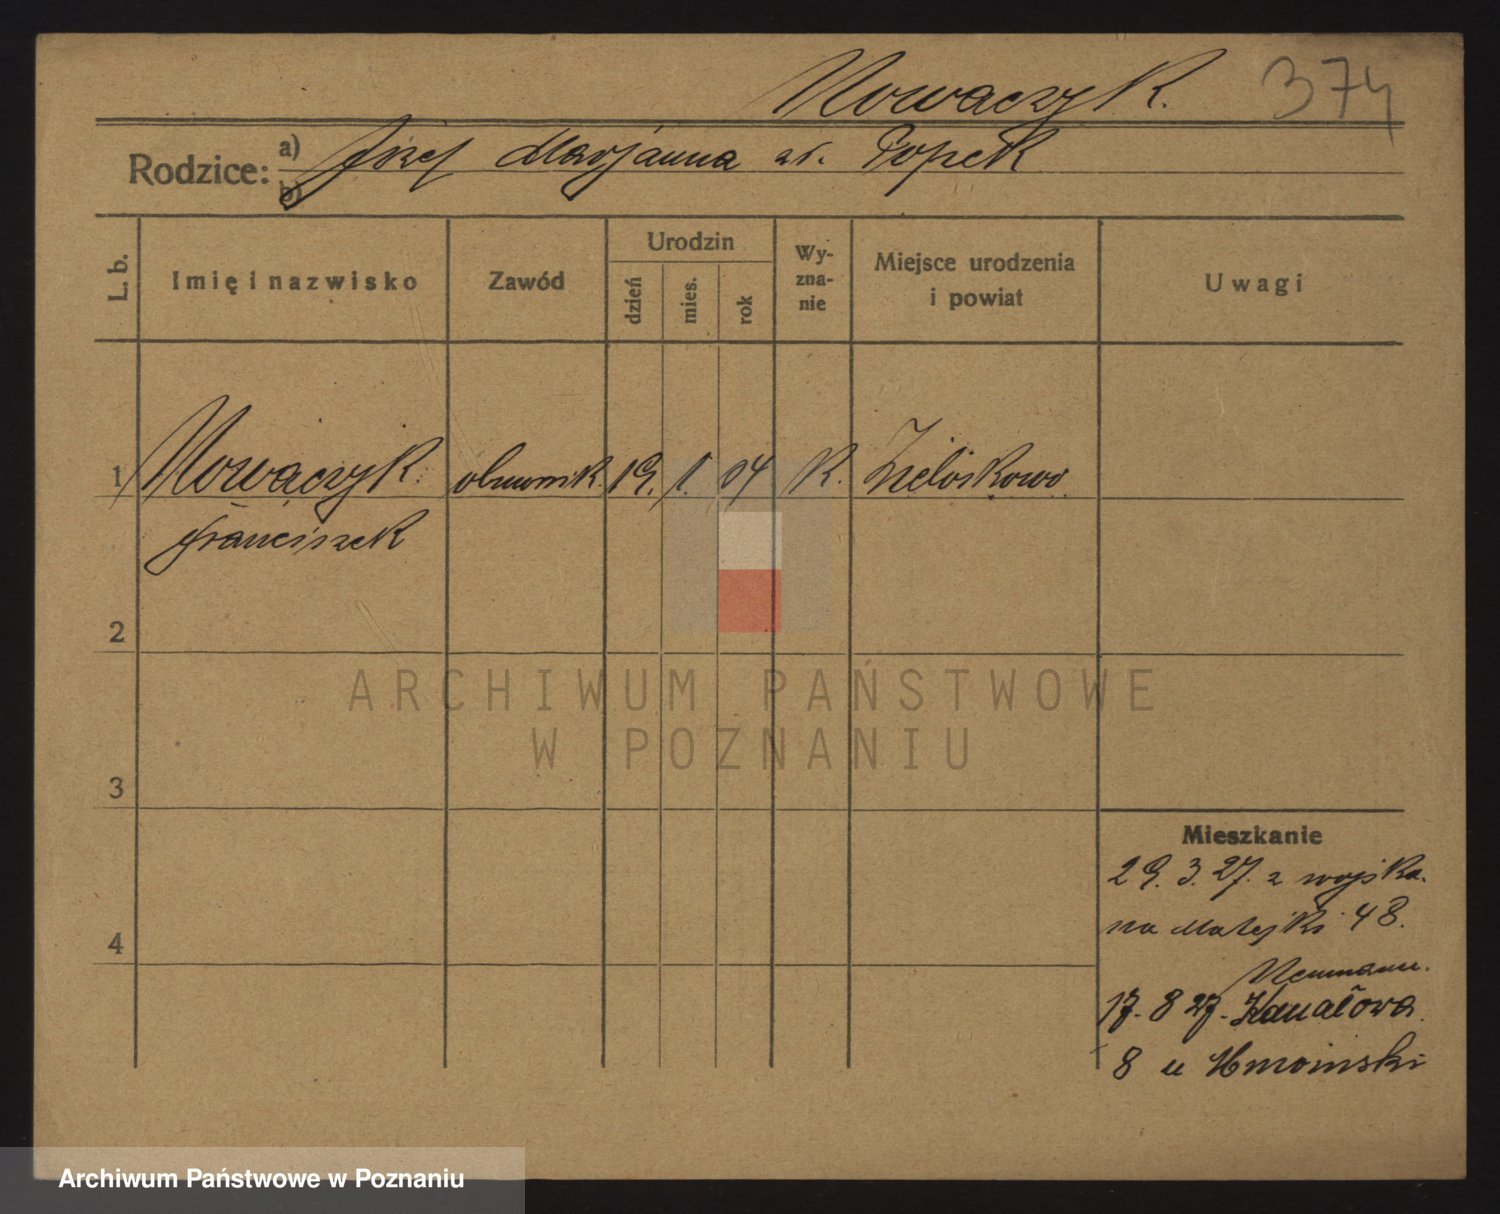 Nowaczyk. 374
Rodzice: a) Józef Marjanna zd. Popek
b)
L. b.
Imię i nazwisko
Zawód
Urodzin
dzień
mies.
rok
Wy-
zna-
nie
Miejsce urodzenia
i powiat
Uwagi
1 Nowaczyk obuwnik 19. 1. 04 K.
Franciszek
2
ARCHIWUM PAŃSTWOWE
W POZNANIU
3
Mieszkanie
29. 3. 27. z wojska.
4 na Matejki 48.
Neumann.
17. 8 27. Kanałowa
8 u
Archiwum Państwowe w Poznaniu